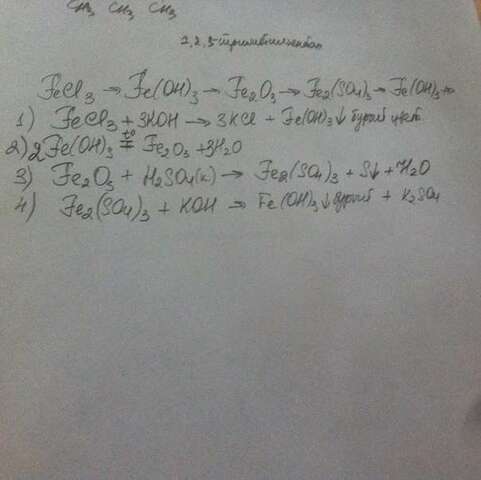 CH₃ CH₃ CH₃
2,2,3-триметилпентан
FeCl₃ → Fe(OH)₃ → Fe₂O₃ → Fe₂(SO₄)₃ → Fe(OH)₃ →
1) FeCl₃ + 3KOH → 3KCl + Fe(OH)₃↓ бурый цвет
2) 2Fe(OH)₃ =t°= Fe₂O₃ + 3H₂O
3) Fe₂O₃ + H₂SO₄(к) → Fe₂(SO₄)₃ + S↓ + H₂O
4) Fe₂(SO₄)₃ + KOH → Fe(OH)₃↓бурый + K₂SO₄